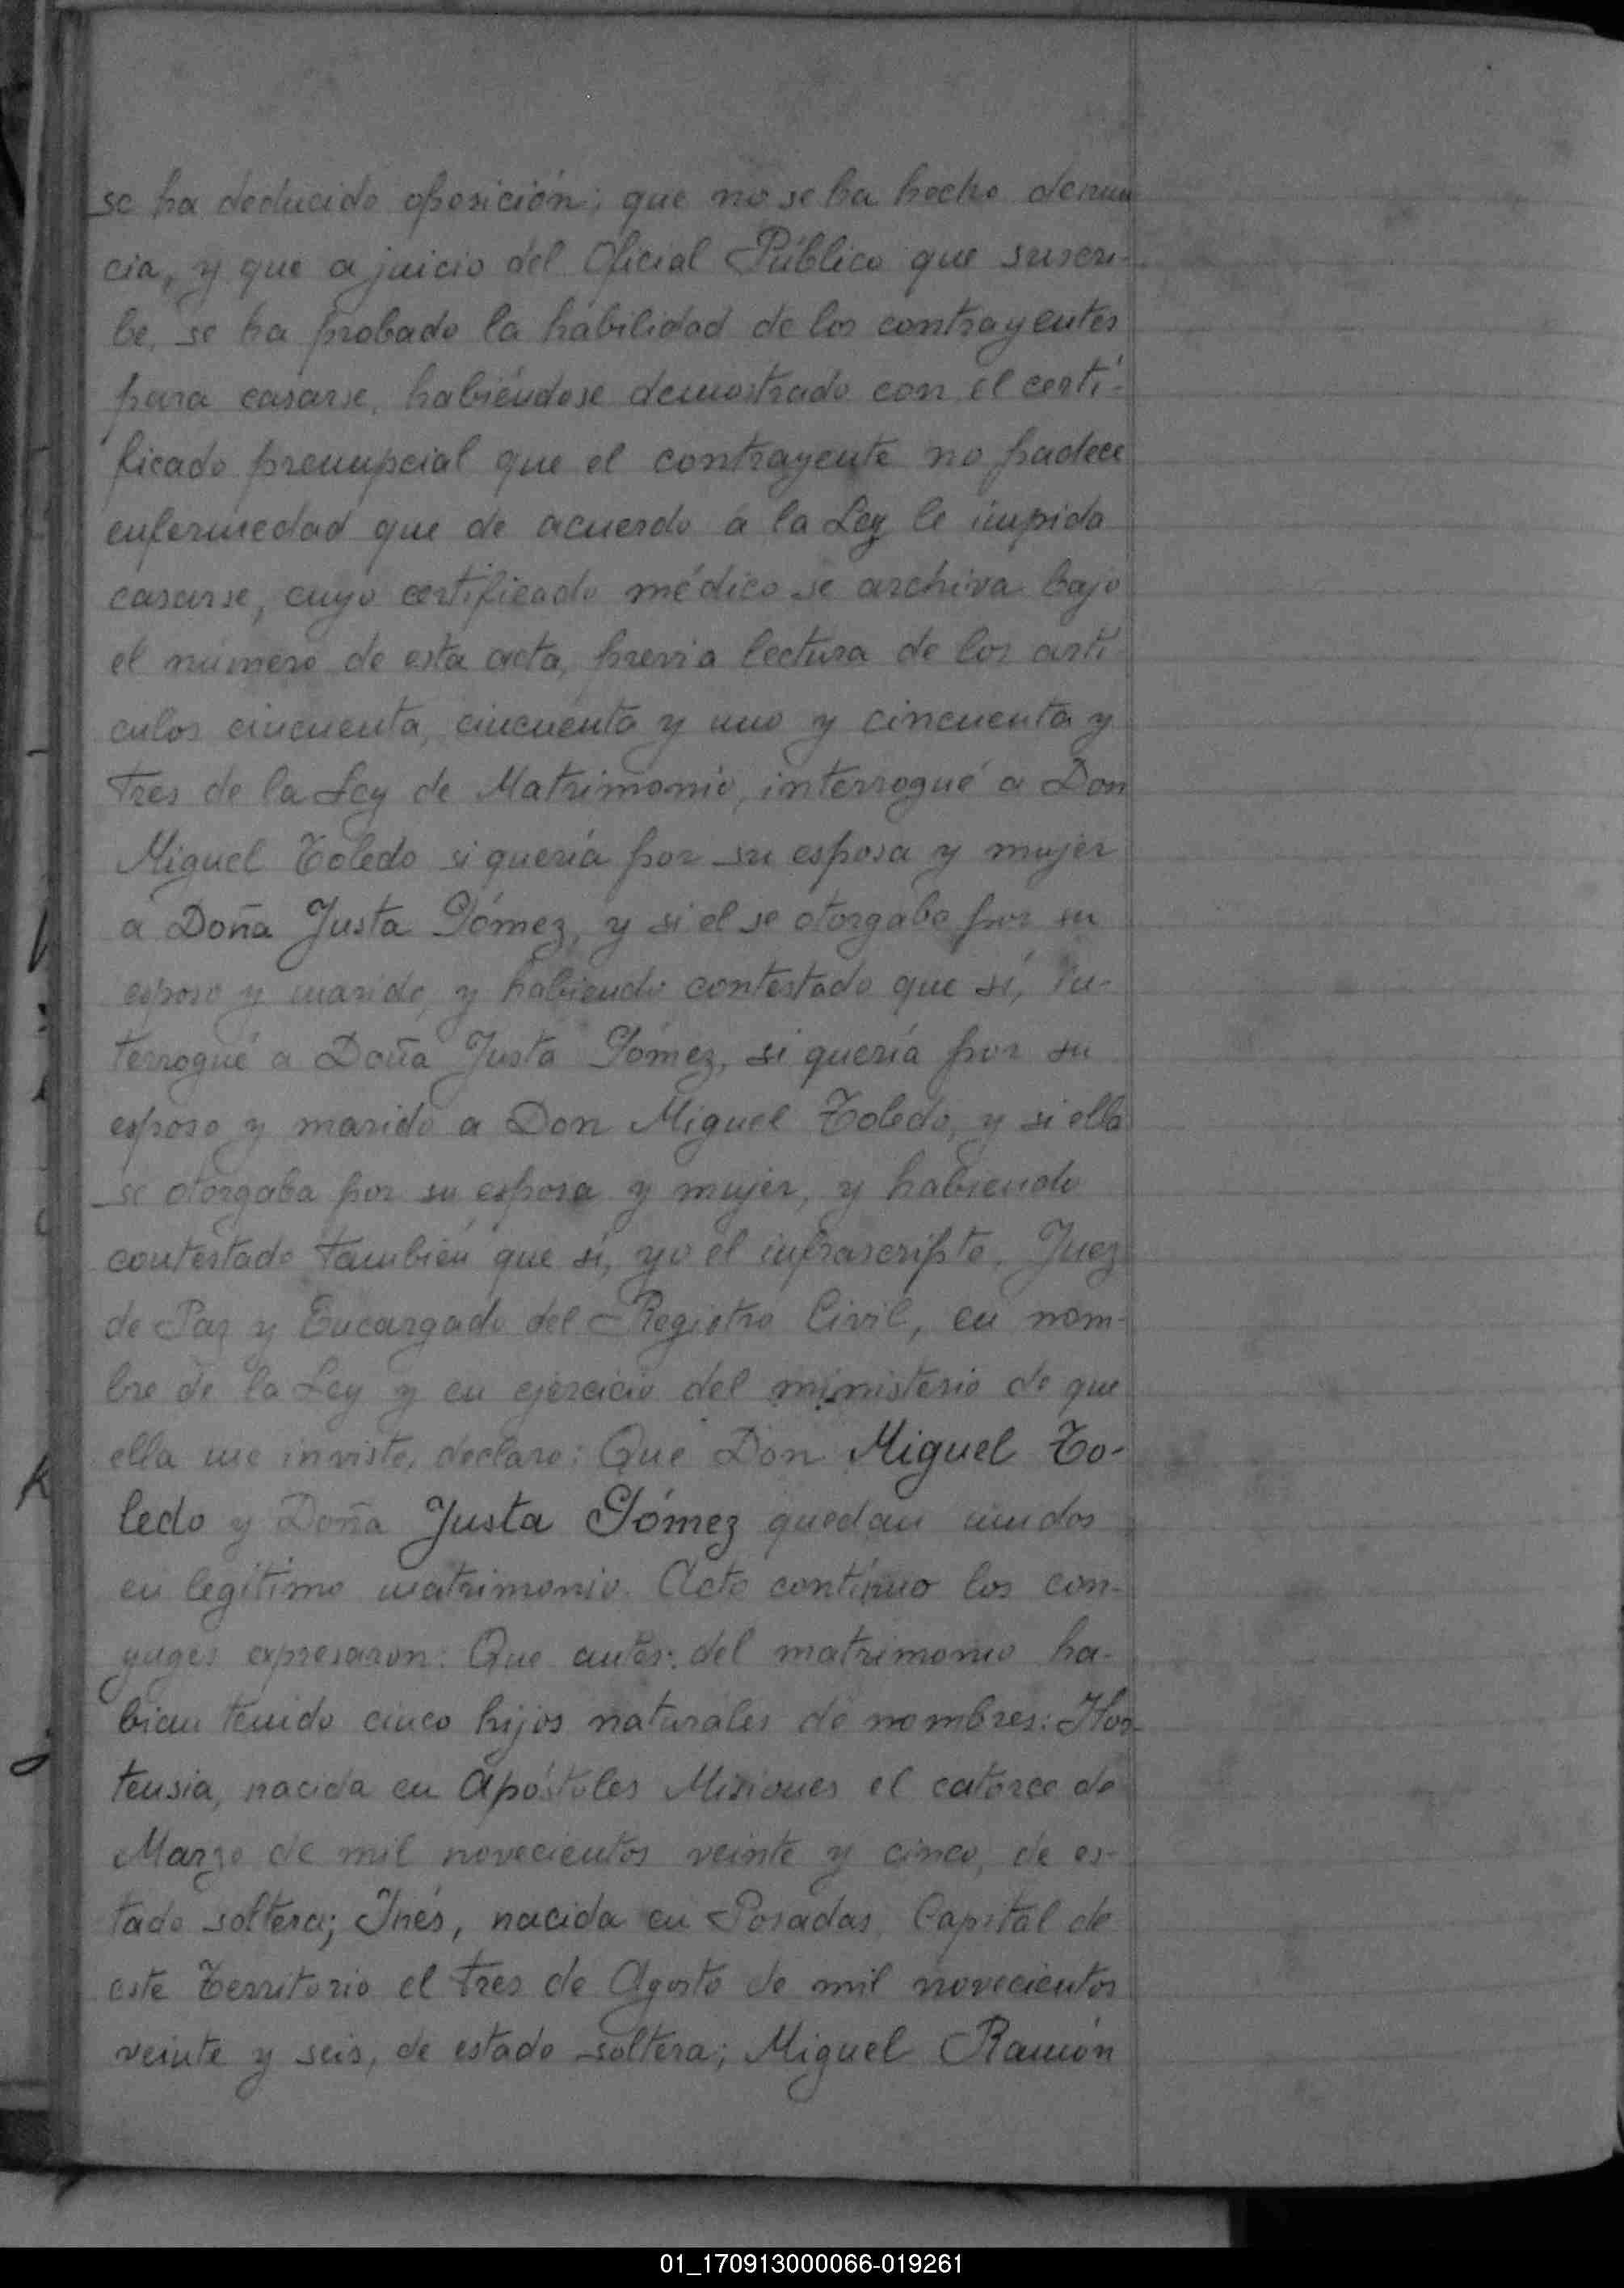 se ha deducido oposición; que no se ha hecho denun
cia, y que a juicio del Oficial Público que suscri-
be, se ha probado la habilidad de los contrayentes
para casarse, habiéndose demostrado con el certi-
ficado prenupcial que el contrayente no padece
enfermedad que de acuerdo á la Ley le impida
casarse, cuyo certificado médico se archiva bajo
el número de esta acta, previa lectura de los artí
culos cincuenta, cincuenta y uno y cincuenta y
tres de la Ley de Matrimonio, interrogué a Don
Miguel Toledo si quería por su esposa y mujer
a Doña Justa Gómez, y si el se otorgaba por su
esposo y marido, y habiendo contestado que sí, in-
terrogué a Doña Justa Gómez, si quería por su
esposo y marido a Don Miguel Toledo, y si ella
se otorgaba por su esposa y mujer, y habiendo
contestado también que sí, yo el infrascripto, Juez
de Paz y Encargado del Registro Civil, en nom-
bre de la Ley y en ejercicio del ministerio de que
ella me inviste, declaro: Que Don Miguel To-
ledo y Doña Justa Gómez quedan unidos
en legítimo matrimonio. Acto contínuo los con-
yuges expresaron: Que antes del matrimonio ha-
bian tenido cinco hijos naturales de nombres: Hor-
tensia, nacida en Apóstoles Misiones el catorce de
Marzo de mil novecientos veinte y cinco, de es-
tado soltera; Inés, nacida en Posadas, Capital de
este Territorio el tres de Agosto de mil novecientos
veinte y seis, de estado soltera; Miguel Ramón
01_170913000066-019261